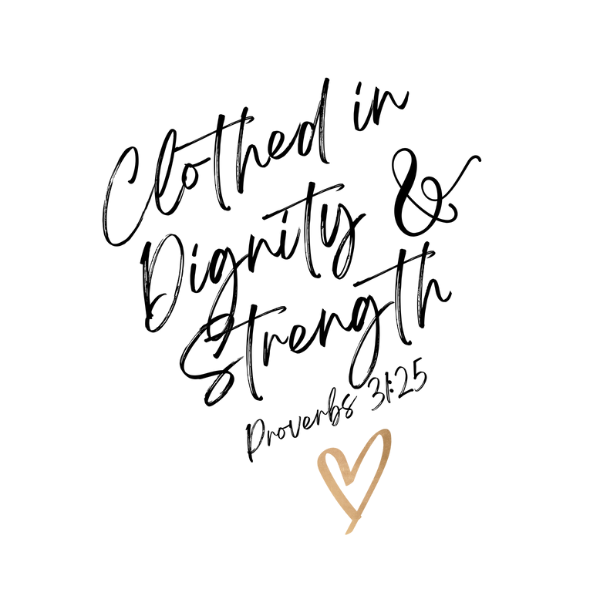 Clothed in
Dignity &
Strength
Proverbs 31:25